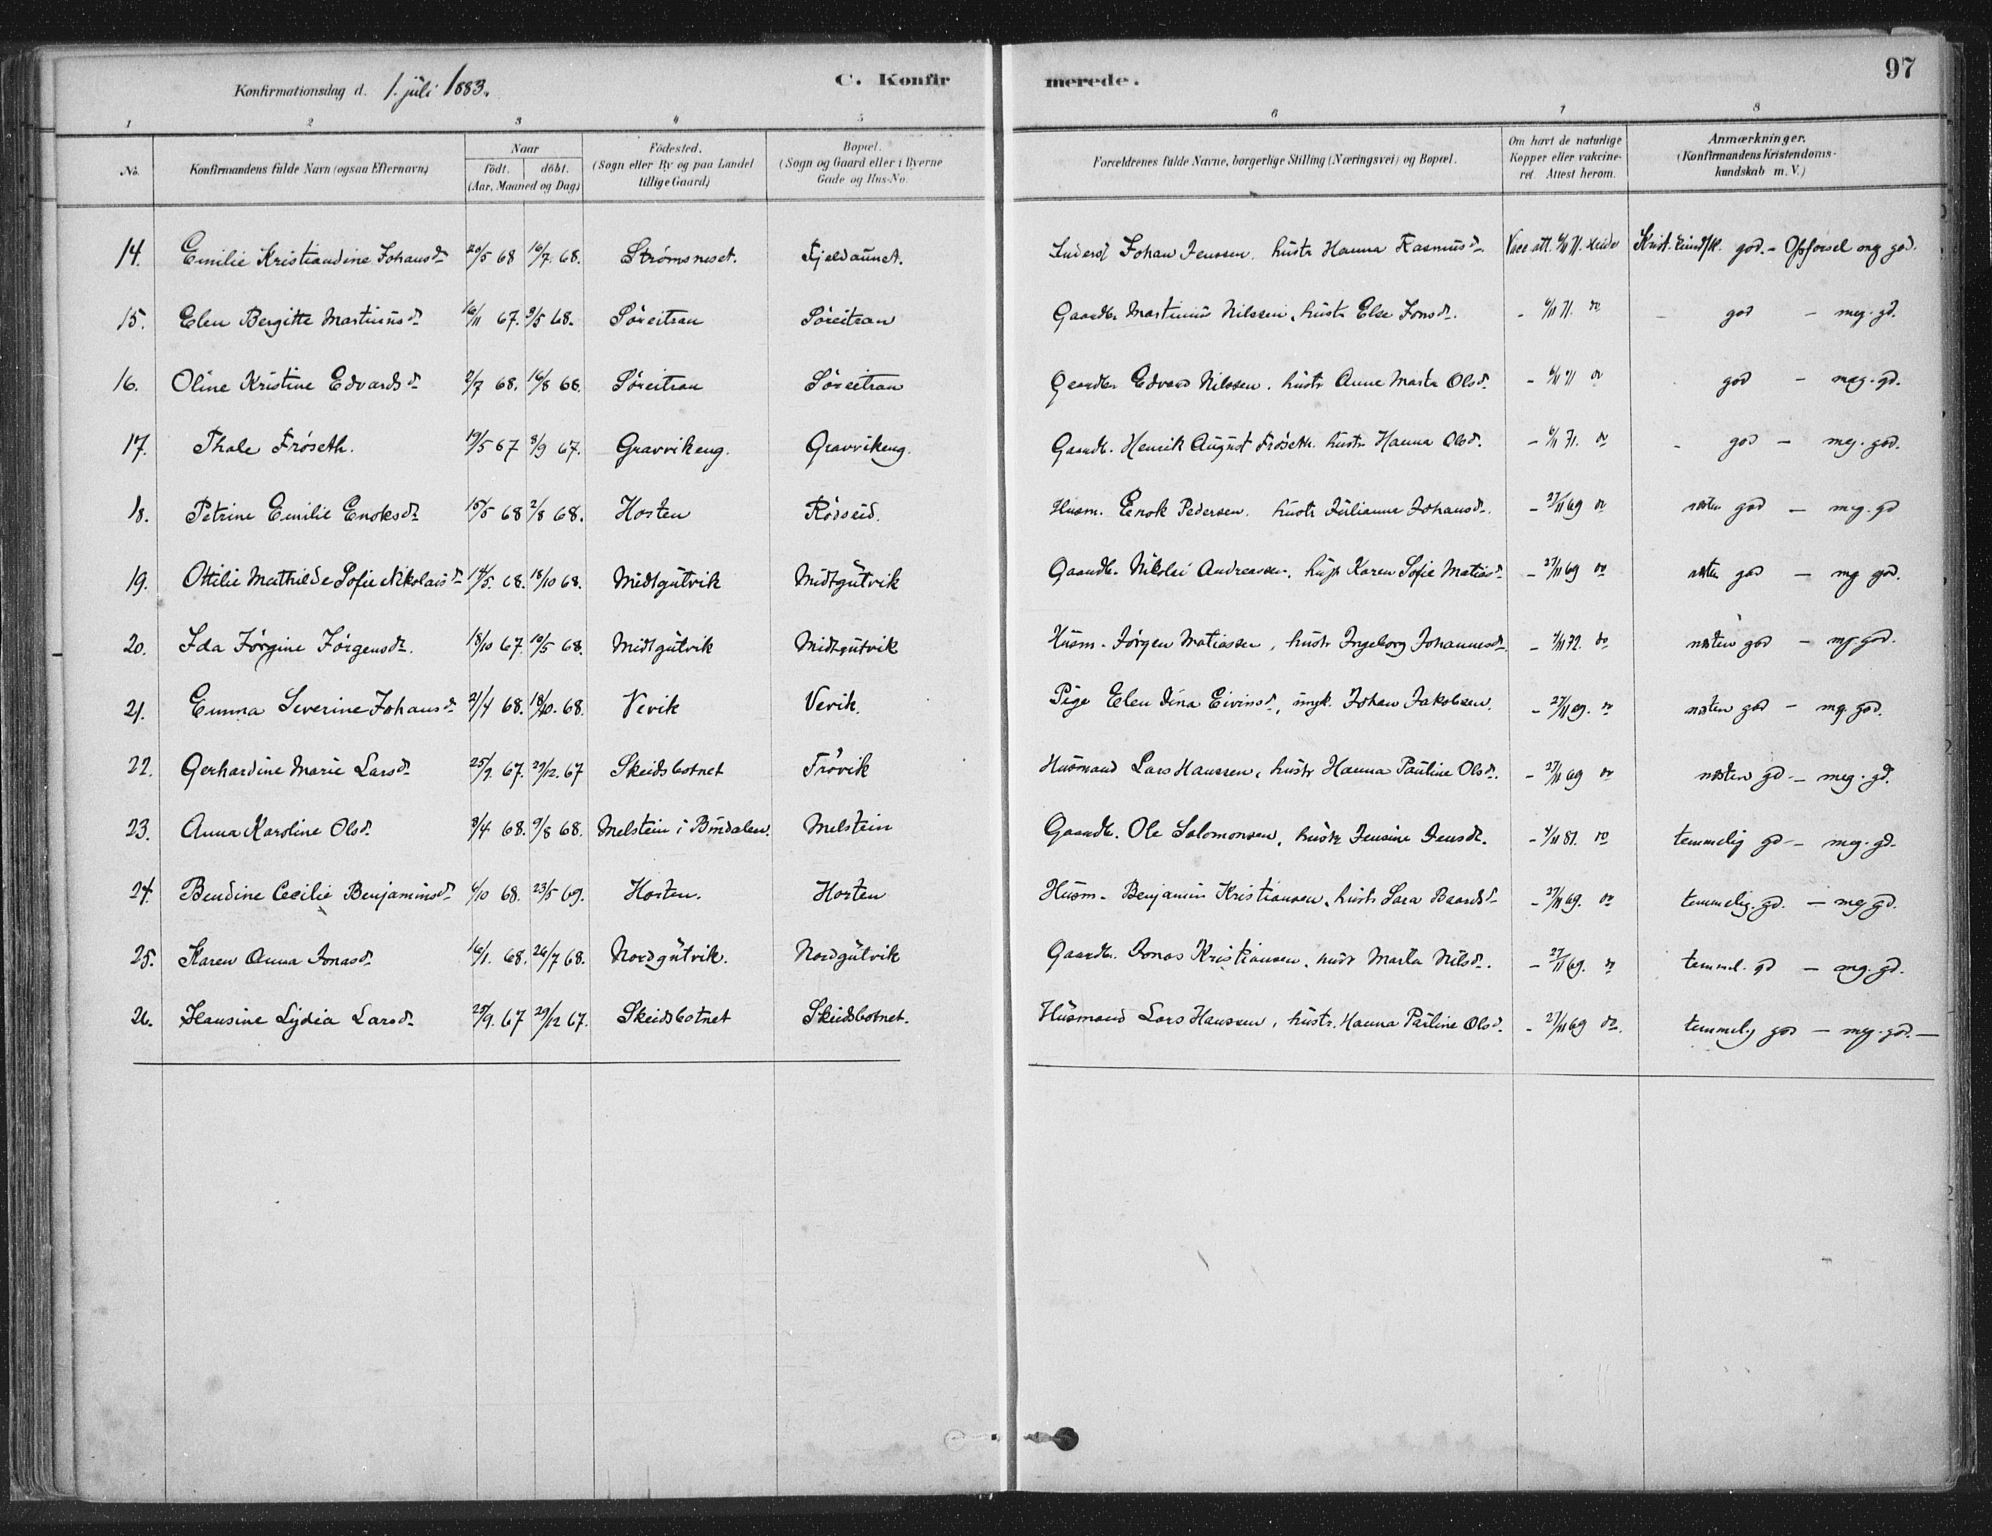 97
Konfirmationsdag d. 1. juli 1883.
C. Konfirmerede.
1 2 3 4 5 6 7 8
No. Konfirmandens fulde Navn (ogsaa Efternavn) Naar födt. döbt. (Aar, Maaned og Dag) Födested. (Sogn eller By og paa Landet tillige Gaard) Bopæl. (Sogn og Gaard eller i Byerne Gade og Hus-No. Forældrenes fulde Navne, borgerlige Stilling (Næringsvei) og Bopæl. Om havt de naturlige Kopper eller vakcineret. Attest herom. Anmærkninger. (Konfirmandens Kristendomskundskab m. V.)
14. Emilie Kristiandine Johansdr 20/5 68 16/7 68. Strømsneset. Fjeldaunet. Johan Jenssen, hustr Hanna Rasmusdr Vacc att. 6/11 71. Kristi. god. - Opførsel meg god.
15. Elen Bergitte Martinusdr 16/11 67. 3/5 68. Söreitran Söreitran Gaardb. Martinus Nilssen, hustr Else Jonsdr. - 6/11 71. do - god - meg. gd.
16. Oline Kristine Edvardsdr 2/7 68. 16/8 68. Söreitran Söreitran Gaardb. Edvard Nilssen, hustr Anne Marta Olsdr. - 6/11 71 do - god - meg. gd.
17. Thale Frøseth. 19/5 67 8/9 67. Gravvikeng. Gravvikeng. Gaardb. Henrik August Frøseth hustr Hanna Olsdr. - 6/11 71. do - god - meg. god.
18. Petrine Emilie Enoksdr 15/5 68 2/8 68. Horten Rödseid. Husm. Enok Pedersen. hustr Julianna Johansdr. - 27/11 69 do næsten god - meg. gd
19. Ottilie Mathilde Sofie Nikolaisdr 14/5. 68. 18/10 68. Midtgutvik Midtgutvik Gaardb. Nikolai Andreassen, hustr Karen Sofie Matiasdr - 27/11 69 do næsten god - mg god.
20. Ida Jørgine Jørgensdr. 18/10 67. 10/5 68. Midtgutvik Midtgutvik Husm. Jørgen Matiassen, hustr Ingeborg Johannesdr. - 4/11 72. do næsten god - mg god.
21. Emma Severine Johansdr 21/4 68. 18/10. 68. Vevik Verik. Pige Elen Dina Eivinsdr, ungk. Johan Jakobsen. - 27/11 69. do næsten god - mg. god.
22. Gerhardine Marie Larsdr 25/9. 67. 29/12. 67 Skeidsbotnet Frövik Husmand Lars Hanssen, hustr Hanna Pauline Olsdr. - 27/11 69 do næsten gd - meg. gd.
23. Anna Karoline Olsdr 3/4 68. 9/8 68. Melstein i Bindalen. Melstein Gaardb. Ole Salomonsen, hustr Jensine Jensdr. - 4/11 81. do temmelig gd - meg. gd.
24. Bendine Cecilie Benjaminsdr 6/10 68. 23/5 69. Horten. Horten Husm. Benjamin Kristiansen, hustr Sara Baardsdr - 27/11 69. do temmelig. gd. - meg gd.
25. Karen Anna Jonasdr 16/1. 68. 26/7 68. Nordgutvik. Nordgutvik Gaardb. Jonas Kristiansen, hustr Marta Nilsdr. - 27/11 69. do temmel. gd - mg. gd.
26. Hansine Lydia Larsdr 25/9. 67 29/12 67. Skeidsbotnet Skeidsbotnet. Husmand Lars Hanssen, hustr. Hanna Pauline Olsdr. - 27/11 69 do. temmelig god - meg. god. -